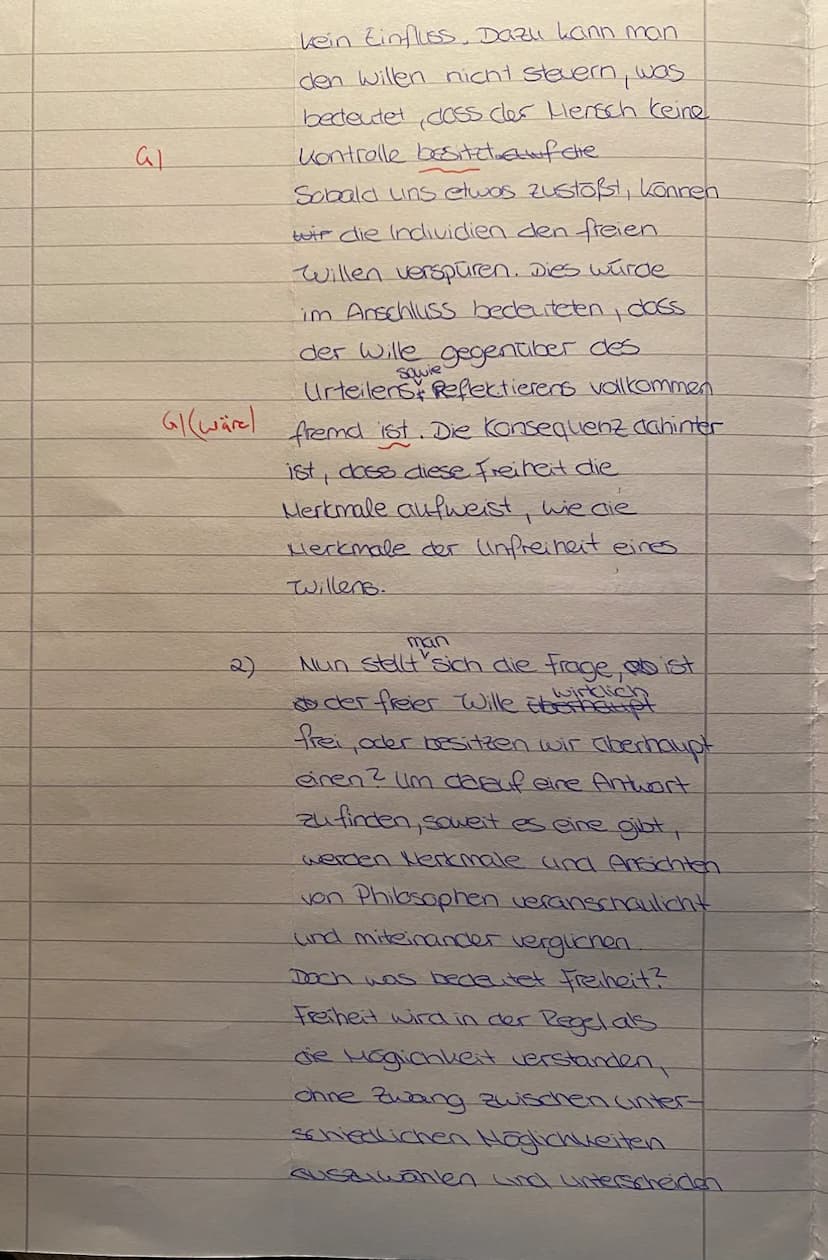 kein Einfluss. Dazu kann man
den Willen nicht steuern, was
bedeutet, dass der Mensch keine
G) Kontrolle besitzt auf die
Sobald uns etwas zustößt, können
wir die Individien den freien
Willen verspüren. Dies würde
im Anschluss bedeuteten, dass
der Wille gegenüber des
sowie
Urteilens, Reflektierens vollkommen
G) (wäre) fremd ist. Die Konsequenz dahinter
ist, dass diese Freiheit die
Merkmale aufweist, wie die
Merkmale der Unfreiheit eines
Willens.
man
2) Nun stellt sich die Frage, ob ist
wirklich
ob der freier Wille überhaupt
frei, oder besitzen wir überhaupt
einen? Um darauf eine Antwort
zu finden, soweit es eine gibt,
werden Merkmale und Ansichten
von Philosophen veranschaulicht
und miteinander verglichen.
Doch was bedeutet Freiheit?
Freiheit wird in der Regel als
die Möglichkeit verstanden,
ohne Zwang zwischen unter-
schiedlichen Möglichkeiten
auszuwählen und unterscheiden